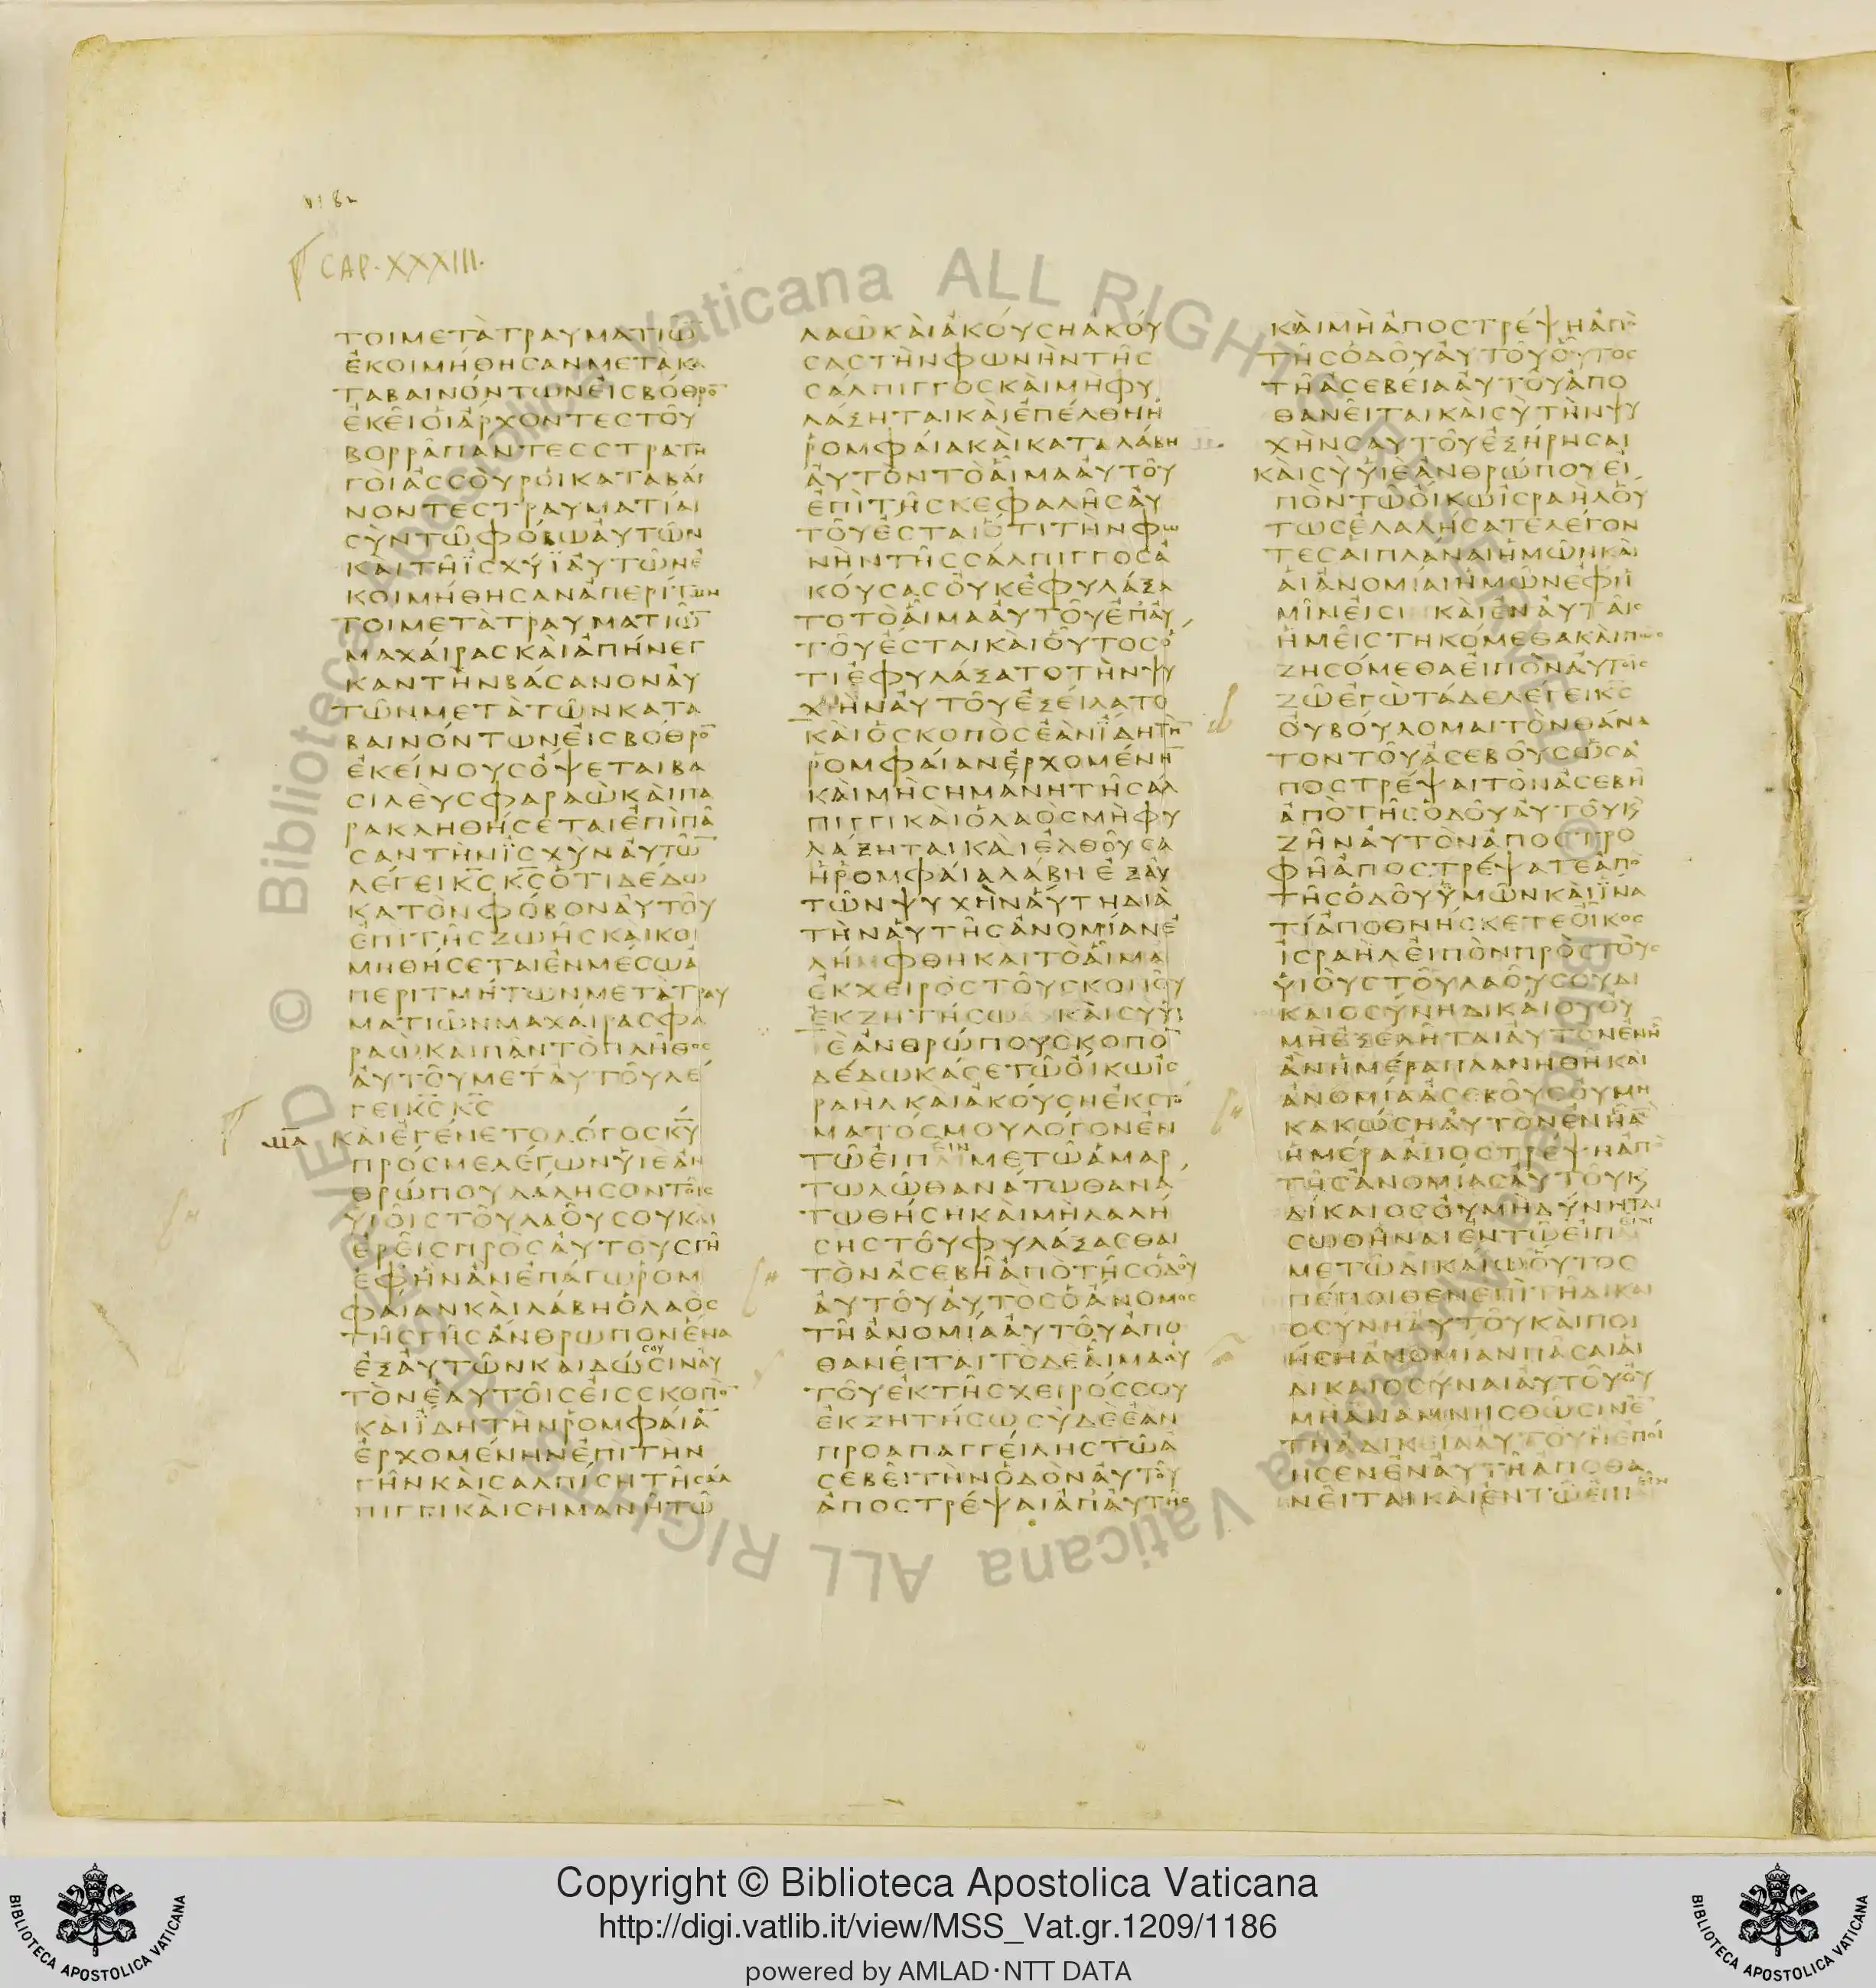 CAP. XXXIII.
ΤΟΙΜΕΤᾺΤΡΑΥΜΑΤΙῶ̅
ἘΚΟΙΜΉΘΗϹΑΝΜΕΤΑΚΑ
ΤΑΒΑΙΝΌΝΤΩΝΕἸϹΒΌΘΡΟ̅
ἘΚΕῖΟἹἌΡΧΟΝΤΕϹΤΟῦ
ΒΟΡΡᾶΠΑΝΤΕϹϹΤΡΑΤΗ
ΓΟῚἈϹϹΟῪΡΟἹΚΑΤΑΒΑΊ
ΝΟΝΤΕϹΤΡΑΥΜΑΤΊΑΙ
ϹῪΝΤῶΦΌΒΩΑὐΤῶΝ
ΚΑΙΤΗΪϹΧΎΪΑὐΤῶΝἘ
ΚΟΙΜΉΘΗϹΑΝἈΠΕΡΊΤΜΗ
ΤΟΙΜΕΤᾺΤΡΑΥΜΑΤΙῶ̅
ΜΑΧΑΊΡΑϹΚΑῚἈΠΉΝΕΓ
ΚΑΝΤῊΝΒΆϹΑΝΟΝΑὐ
ΤῶΝΜΕΤᾺΤῶΝΚΑΤΑ
ΒΑΙΝΌΝΤΩΝΕἸϹΒΌΘΡΟ̅
ἘΚΕΊΝΟΥϹὌΨΕΤΑΙΒΑ
ϹΙΛΕῪϹΦΑΡΑῺΚΑῚΠΑ
ΡΑΚΛΗΘΉϹΕΤΑΙἘΠΙΠᾶ
ϹΑΝΤῊΝΪϹΧῪΝΑὐΤῶ̅
ΛΈΓΕΙΚ̅Ϲ̅Κ̅Ϲ̅ὍΤΙΔΕΔΩ
ΚΑΤῸΝΦΌΒΟΝΑὐΤΟῦ
ἘΠΙΤΗϹΖΩΗϹΚΑΙΚΟΙ
ΜΗΘΉϹΕΤΑΙἘΝΜΈϹΩἈ
ΠΕΡΙΤΜΉΤΩΝΜΕΤᾺΤΡΑΥ
ΜΑΤΙῶΝΜΑΧΑΊΡΑϹΦΑ
ΡΑῺΚΑΙΠΑΝΤῸΠΛΗΘΟϹ
ΑὐΤΟῦΜΕΤΑὐΤΟῦΛΈ
ΓΕΙΚ̅Ϲ̅Κ̅Ϲ̅
ΚΑῚἘΓΈΝΕΤΟΛΌΓΟϹΚ̅Υ̅
ΠΡΌϹΜΕΛΈΓΩΝΥἹῈἈΝ
ΘΡΏΠΟΥΛΆΛΗϹΟΝΤΟῖϹ
ΥἹΟῖϹΤΟῦΛΑΟῦϹΟΥΚΑΙ
ἘΡΕῖϹΠΡῸϹΑὐΤΟΥϹΓΗ
ἘΦΗΝἊΝἘΠΆΓΩΡΟΜ
ΦΑΊΑΝΚΑῚΛΆΒΗὉΛΑῸϹ
ΤΗϹΓΗϹἌΝΘΡΩΠΟΝἝΝΑ
ἘΞΑὐΤῶΝΚΑΙΔΏϹΙΝΑὐ
ΤῸΝἘΑΥΤΟῖϹΕἸϹϹΚΟΠῸ̅
ΚΑΙΪΔΗΤῊΝΡΟΜΦΑΊΑ̅
ἘΡΧΟΜΈΝΗΝἘΠΙΤΗΝ
ΓΗΝΚΑῚϹΑΛΠΊϹΗΤΗϹΆΛ
ΠΙΓΓΙΚΑῚϹΗΜΆΝΗΤῶ
ΛΑῶΚΑῚἈΚΟΎϹΗἈΚΟΎ
ϹΑϹΤῊΝΦΩΝῊΝΤΗϹ
ϹΆΛΠΙΓΓΟϹΚΑῚΜῊΦΥ
ΛΆΞΗΤΑΙΚΑῚἘΠΈΛΘΗἩ
ΡΟΜΦΑΊΑΚΑῚΚΑΤΑΛΆΒΗ
ΑὐΤῸΝΤῸΑἷΜΑΑὐΤΟῦ
ἘΠῚΤΗϹΚΕΦΑΛΗϹΑὐ
ΤΟῦἜϹΤΑΙὍΤΙΤῊΝΦΩ
ΝῊΝΤΗϹϹΆΛΠΙΓΓΟϹἈ
ΚΟΎϹΑϹΟὐΚἘΦΥΛΆΞΑ
ΤΟΤῸΑἷΜΑΑὐΤΟῦἘΠΑὐ
ΤΟῦἜϹΤΑΙΚΑῚΟὗΤΟϹὍ
ΤΙἘΦΥΛΆΞΑΤΟΤῊΝΨΥ
ΧῊΝΑὐΤΟῦἘΞΕΊΛΑΤΟ
ΚΑῚὉϹΚΟΠῸϹἘᾺΝΪΔΗΤῊ̅
ΡΟΜΦΑΊΑΝἘΡΧΟΜΈΝΗ̅
ΚΑῚΜῊϹΗΜΆΝΗΤΗϹΆΛ
ΠΙΓΓΙΚΑῚὉΛΑῸϹΜῊΦΥ
ΛΆΞΗΤΑΙΚΑῚἘΛΘΟῦϹΑ
ἩΡΟΜΦΑΊΑΛΆΒΗἘΞΑὐ
ΤῶΝΨΥΧῊΝΑὕΤΗΔΙᾺ
ΤῊΝΑὐΤΗϹἈΝΟΜΊΑΝἘ
ΛΉΜΦΘΗΚΑΙΤῸΑἷΜΑ
ἘΚΧΕΙΡῸϹΤΟῦϹΚΟΠΟῦ
ἘΚΖΗΤΉϹΩΚΑῚϹῪΥἹ
ῈἈΝΘΡΏΠΟΥϹΚΟΠΟ̅
ΔΈΔΩΚΆϹΕΤῶΟἼΚΩἸϹ
ΡΑΗΛΚΑΙἈΚΟΎϹΗἘΚϹΤΟ
ΜΑΤΌϹΜΟΥΛΌΓΟΝἘΝ
ΤῶΕἸΠΕῖΝΜΕΤῶἉΜΑΡ
ΤΩΛῶΘΑΝΆΤΩΘΑΝΑ
ΤΩΘΉϹΗΚΑῚΜῊΛΑΛΉ
ϹΗϹΤΟῦΦΥΛΆΞΑϹΘΑΙ
ΤῸΝἈϹΕΒΗἈΠῸΤΗϹὉΔΟῦ
ΑὐΤΟῦΑὐΤῸϹὉἌΝΟΜΟϹ
ΤΗἈΝΟΜΊΑΑὐΤΟῦἈΠΟ
ΘΑΝΕῖΤΑΙΤῸΔΕΑἷΜΑΑὐ
ΤΟῦἘΚΤΗϹΧΕΙΡΌϹϹΟΥ
ἘΚΖΗΤΉϹΩϹῪΔῈἘᾺΝ
ΠΡΟΑΠΑΓΓΕΊΛΗϹΤῶἈ
ϹΕΒΕῖΤῊΝὉΔῸΝΑὐΤΟῦ
ἈΠΟϹΤΡΈΨΑΙἈΠΑὐΤΗϹ
ΚΑῚΜῊἈΠΟϹΤΡΈΨΗἈΠῸ
ΤΗϹὉΔΟῦΑὐΤΟῦΟὗΤΟϹ
ΤΗἈϹΕΒΕΊΑΑὐΤΟῦἈΠΟ
ΘΑΝΕῖΤΑΙΚΑῚϹῪΤῊΝΨΥ
ΧῊΝϹΑΥΤΟῦἘΞΉΡΗϹΑΙ
ΚΑῚϹῪΥἹῈἈΝΘΡΏΠΟΥΕἸ
ΠῸΝΤῶΟἼΚΩἸϹΡΑῊΛΟὕ
ΤΩϹἘΛΑΛΉϹΑΤΕΛΈΓΟΝ
ΤΕϹΑἹΠΛΆΝΑΙἩΜῶΝΚΑῚ
ΑἹἈΝΟΜΊΑΙἩΜῶΝἘΦΗ
ΜῖΝΕἸϹΙΚΑῚἘΝΑὐΤΑῖϹ
ἩΜΕῖϹΤΗΚΌΜΕΘΑΚΑῚΠῶϹ
ΖΗϹΌΜΕΘΑΕἸΠῸΝΑὐΤΟῖϹ
ΖῶἘΓῺΤΆΔΕΛΈΓΕΙΚ̅Ϲ̅
ΟὐΒΟΎΛΟΜΑΙΤῸΝΘΆΝΑ
ΤΟΝΤΟῦἈϹΕΒΟῦϹὩϹἈ
ΠΟϹΤΡΈΨΑΙΤῸΝἈϹΕΒΗ
ἈΠῸΤΗϹὉΔΟῦΑὐΤΟῦϏ
ΖΗΝΑὐΤῸΝἈΠΟϹΤΡΟ
ΦΗἈΠΟϹΤΡΈΨΑΤΕἈΠῸ
ΤΗϹὉΔΟῦΫΜῶΝΚΑῚΪΝΑ
ΤΊἈΠΟΘΝΉϹΚΕΤΕΟἾΚΟϹ
ἸϹΡΑῊΛΕἸΠῸΝΠΡῸϹΤΟῪϹ
ΥἹΟῪϹΤΟῦΛΑΟῦϹΟΥΔΙ
ΚΑΙΟϹΎΝΗΔΙΚΑΊΟΥΟὐ
ΜῊἘΞΕΛΗΤΑΙΑὐΤῸΝἘΝΗ
ἊΝἩΜΈΡΑΠΛΑΝΗΘΗΚΑΙ
ἈΝΟΜΊΑἈϹΕΒΟῦϹΟὐΜΗ
ΚΑΚΏϹΗΑὐΤῸΝἘΝΗἊ̅
ἩΜΈΡΑἈΠΟϹΤΡΈΨΗἈΠῸ
ΤΗϹἈΝΟΜΊΑϹΑὐΤΟῦϏ
ΔΊΚΑΙΟϹΟὐΜῊΔΎΝΗΤΑΙ
ϹΩΘΗΝΑΙἘΝΤῶΕἸΠΕῖΝ
ΜΕΤῶΔΙΚΑΊΩΟὗΤΟϹ
ΠΈΠΟΙΘΕΝἘΠῚΤΗΔΙΚΑΙ
ΟϹΎΝΗΑὐΤΟῦΚΑῚΠΟΙ
ΉϹΗἈΝΟΜΊΑΝΠᾶϹΑΙΑἹ
ΔΙΚΑΙΟϹΎΝΑΙΑὐΤΟῦΟὐ
ΜῊἈΝΑΜΝΗϹΘῶϹΙΝἘ̅
ΤΗἈΔΙΚΕΙΑΑὐΤΟῦΗἘΠΟΊ
ΗϹΕΝἘΝΑὐΤΗἈΠΟΘΑ
ΝΕῖΤΑΙΚΑῚἘΝΤῶΕἸΠΕῖΝ
Copyright © Biblioteca Apostolica Vaticana
http://digi.vatlib.it/view/MSS_Vat.gr.1209/1186
powered by AMLAD·NTT DATA
BIBLIOTECA APOSTOLICA VATICANA
BIBLIOTECA APOSTOLICA VATICANA